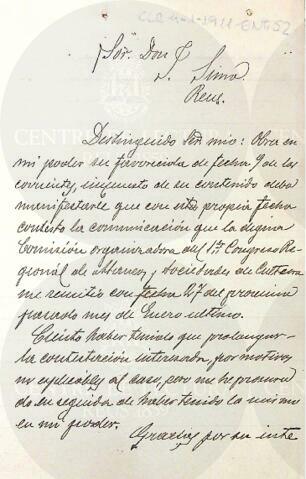 Sor. Don J. Simó
Reus.
Distinguido Sr. mio: Obra en
mi poder su favorecida de fecha 9 de los
corrientes, impuesto de su contenido debo
manifestarle que con esta propia fecha
contesto la comunicación que la digna
Comisión organizadora del 1er. Congreso Re-
gional de Ateneos y Sociedades de Cultura
me remitió con fecha 27 del proximo
pasado mes de Enero ultimo.
Siento haber tenido que prolongar
la contestación interesada, por motivos
no explicables al caso, pero me he procura-
do en seguida de haber tenido la misma
en mi poder.
Gracias por su inte